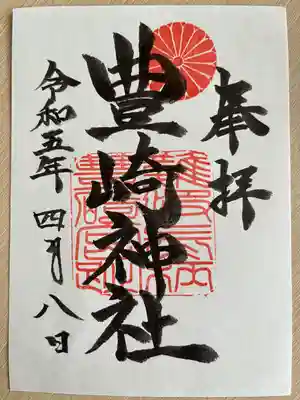 奉拝
豊崎神社
令和五年 四月 八日